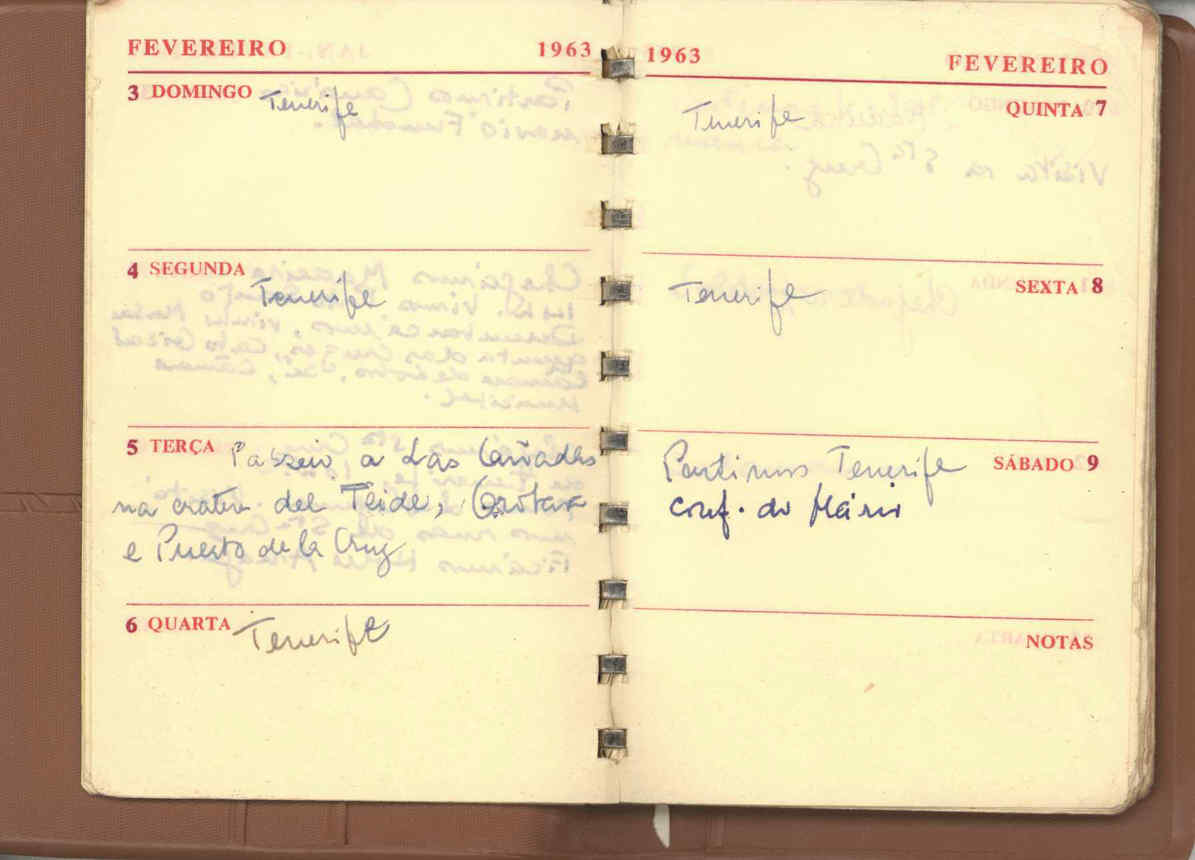 FEVEREIRO 1963
3 DOMINGO Tenerife
4 SEGUNDA
Tenerife
5 TERÇA Passeio a Las Cañadas
na cratera del Teide, Orotava
e Puerto de la Cruz
6 QUARTA Tenerife
1963 FEVEREIRO
QUINTA 7
Tenerife
SEXTA 8
Tenerife
SÁBADO 9
Partimos Tenerife
conf. do Mário
NOTAS